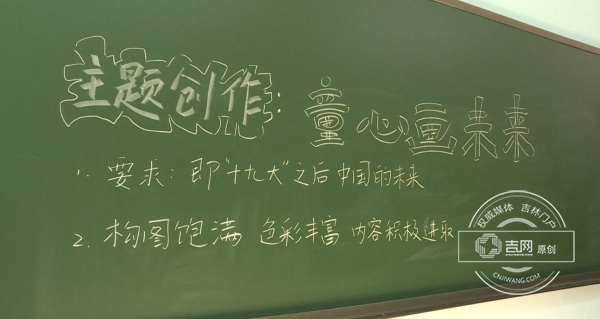 主题创作：童心画未来
1、要求：即“十九大”之后中国的未来
2. 构图饱满 色彩丰富 内容积极进取
权威媒体 吉林门户
吉网 原创
CNJIWANG.COM